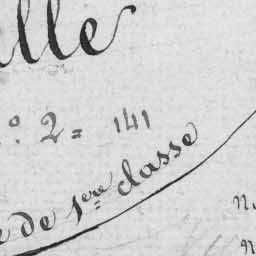 lle
º. 2= 141
e de 1ere classe
N
N